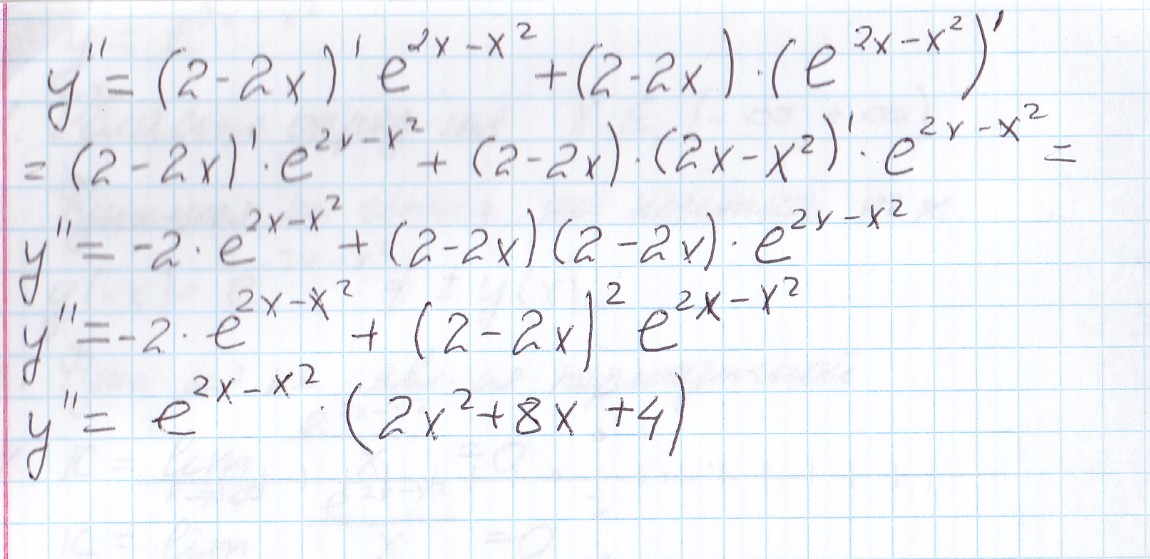 y'' = (2-2x)' e^{2x-x^2} + (2-2x) · (e^{2x-x^2})'
= (2-2x)' · e^{2x-x^2} + (2-2x) · (2x-x^2)' · e^{2x-x^2} =
y'' = -2 · e^{2x-x^2} + (2-2x)(2-2x) · e^{2x-x^2}
y'' = -2 · e^{2x-x^2} + (2-2x)^2 e^{2x-x^2}
y'' = e^{2x-x^2} · (2x^2+8x+4)